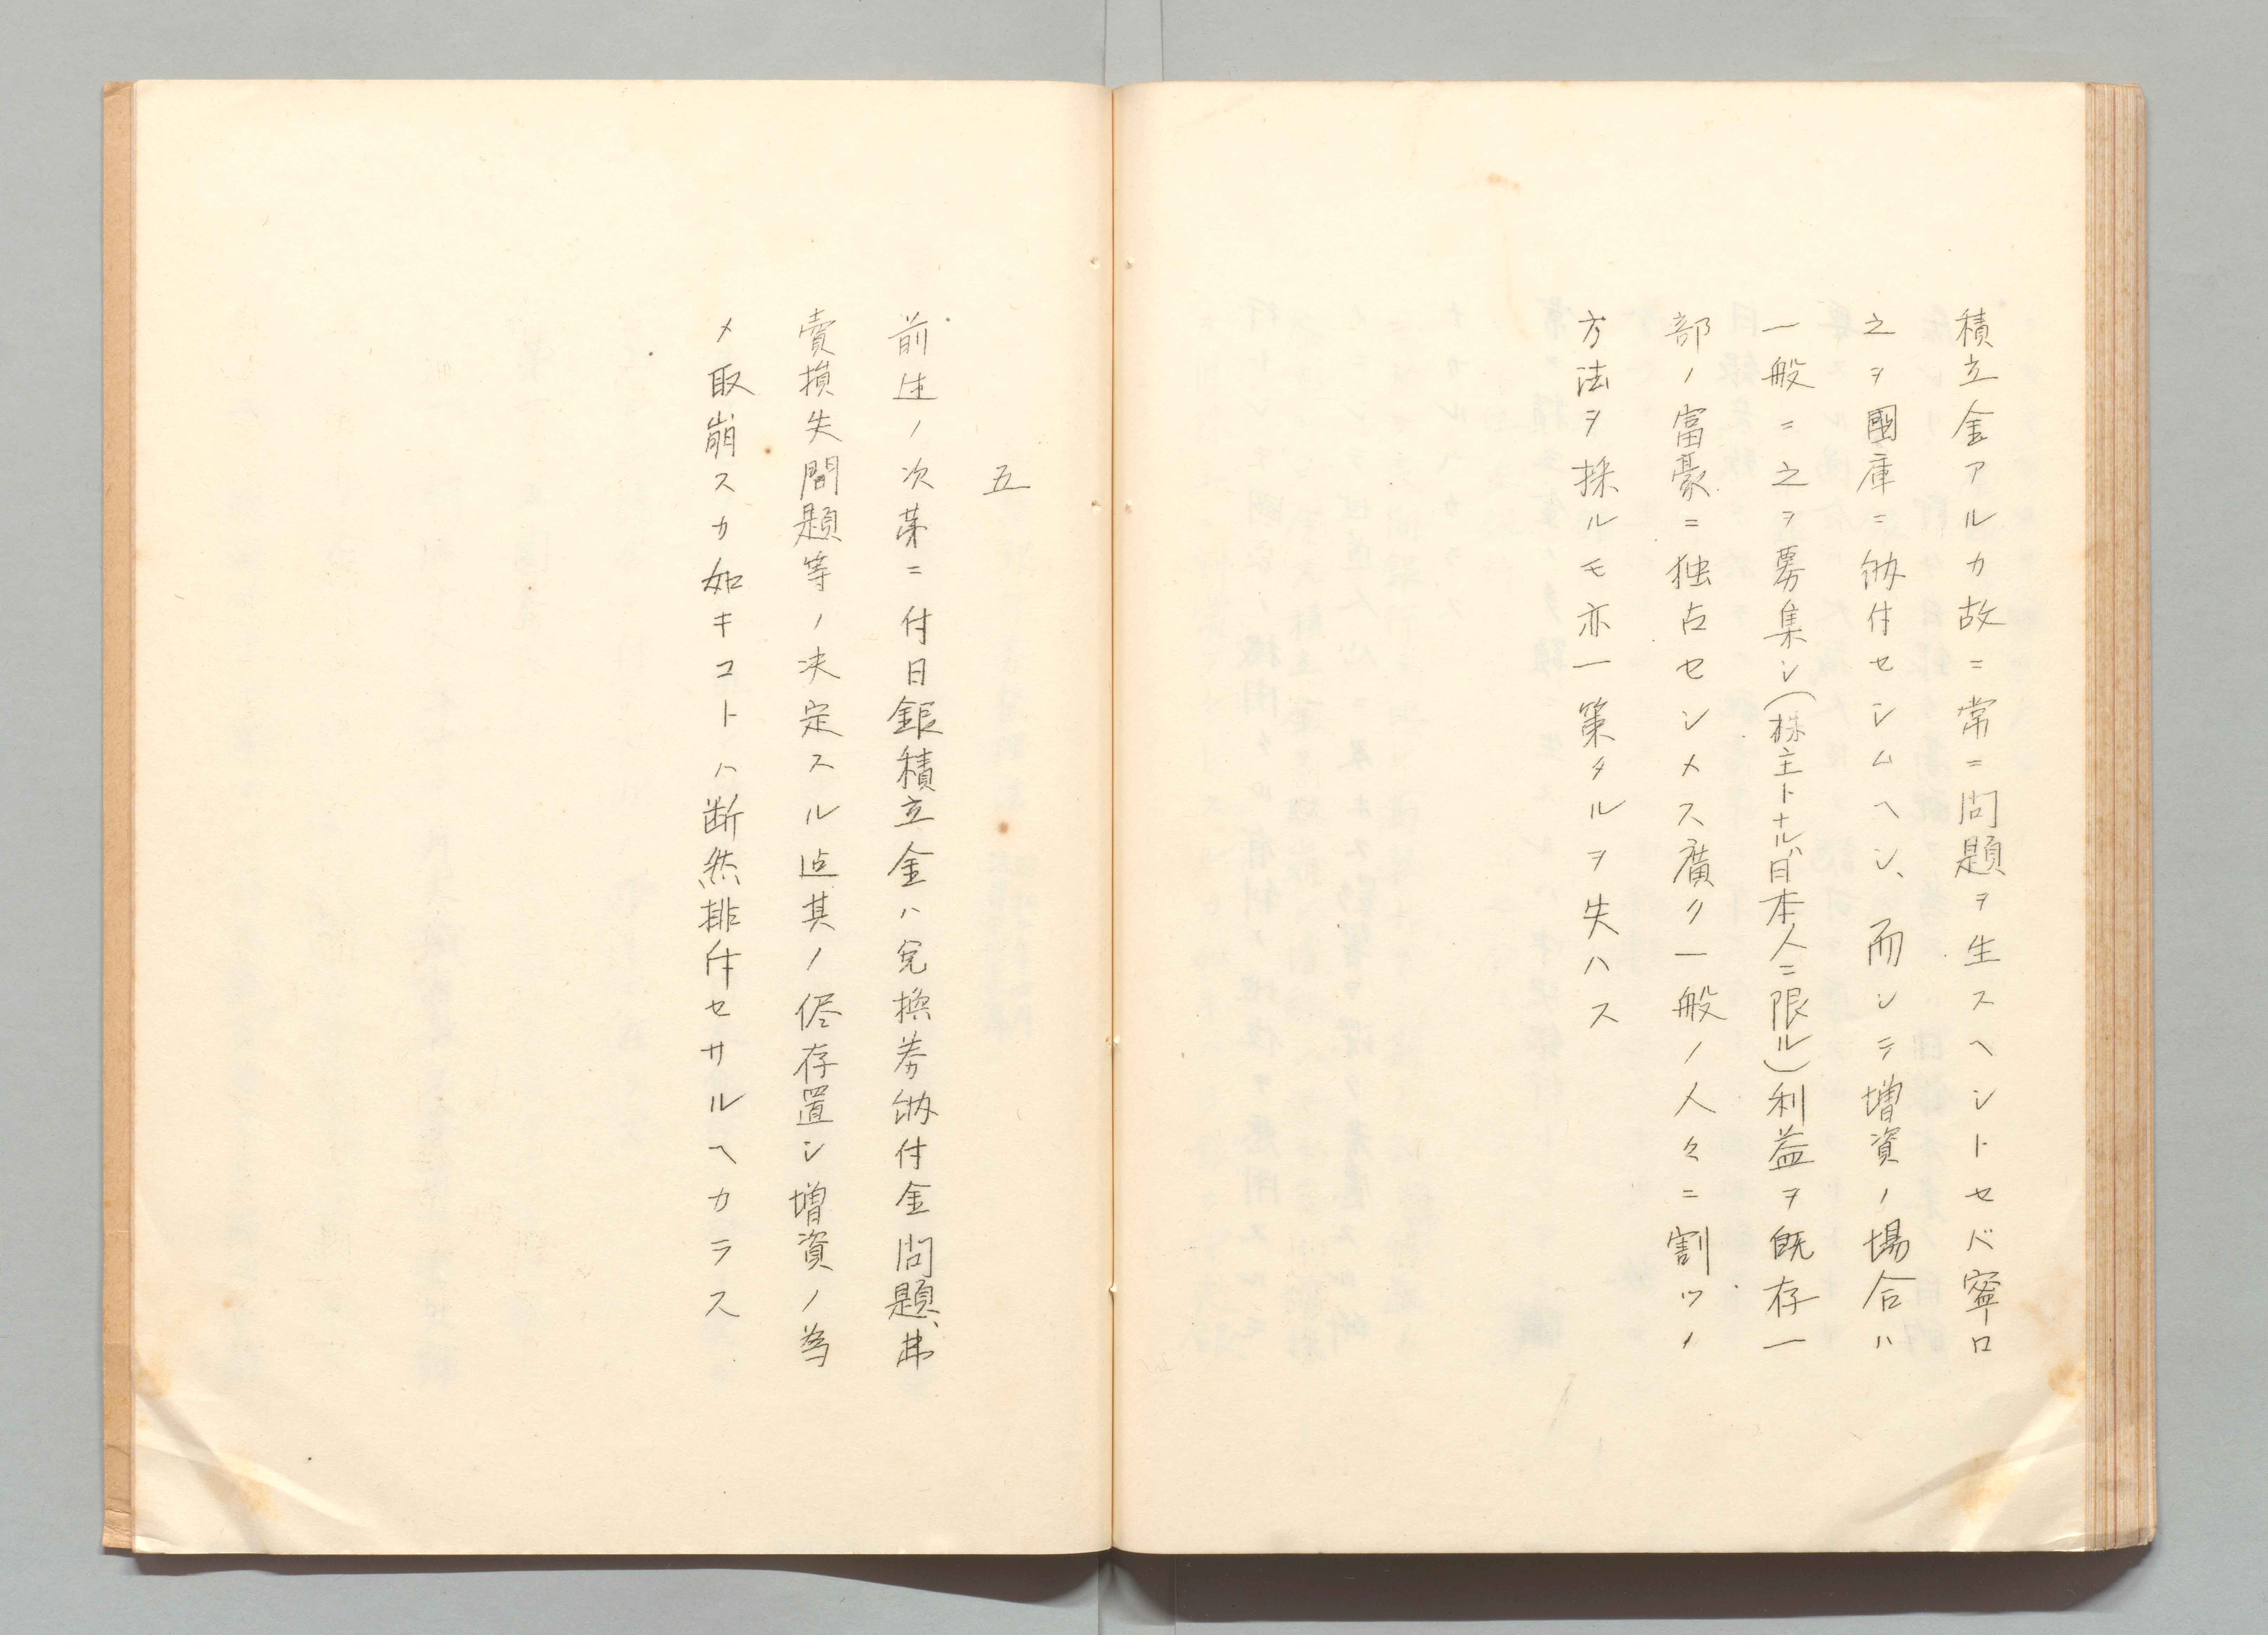 積立金アルカ故ニ常ニ問題ヲ生スヘシトセバ寧ロ
之ヲ國庫ニ納付セシムヘシ、而シテ増資ノ場合ハ
一般ニ之ヲ募集シ(株主トナルハ日本人ニ限ル)利益ヲ既存一
部ノ富豪ニ独占セシメス廣ク一般ノ人々ニ割ツノ
方法ヲ採ルモ亦一策タルヲ失ハス
五
前述ノ次第ニ付日銀積立金ハ兌換券納付金問題、弗
賣損失問題等ノ決定スル迠其ノ侭存置シ増資ノ為
メ取崩スカ如キコトハ断然排斥セサルヘカラス